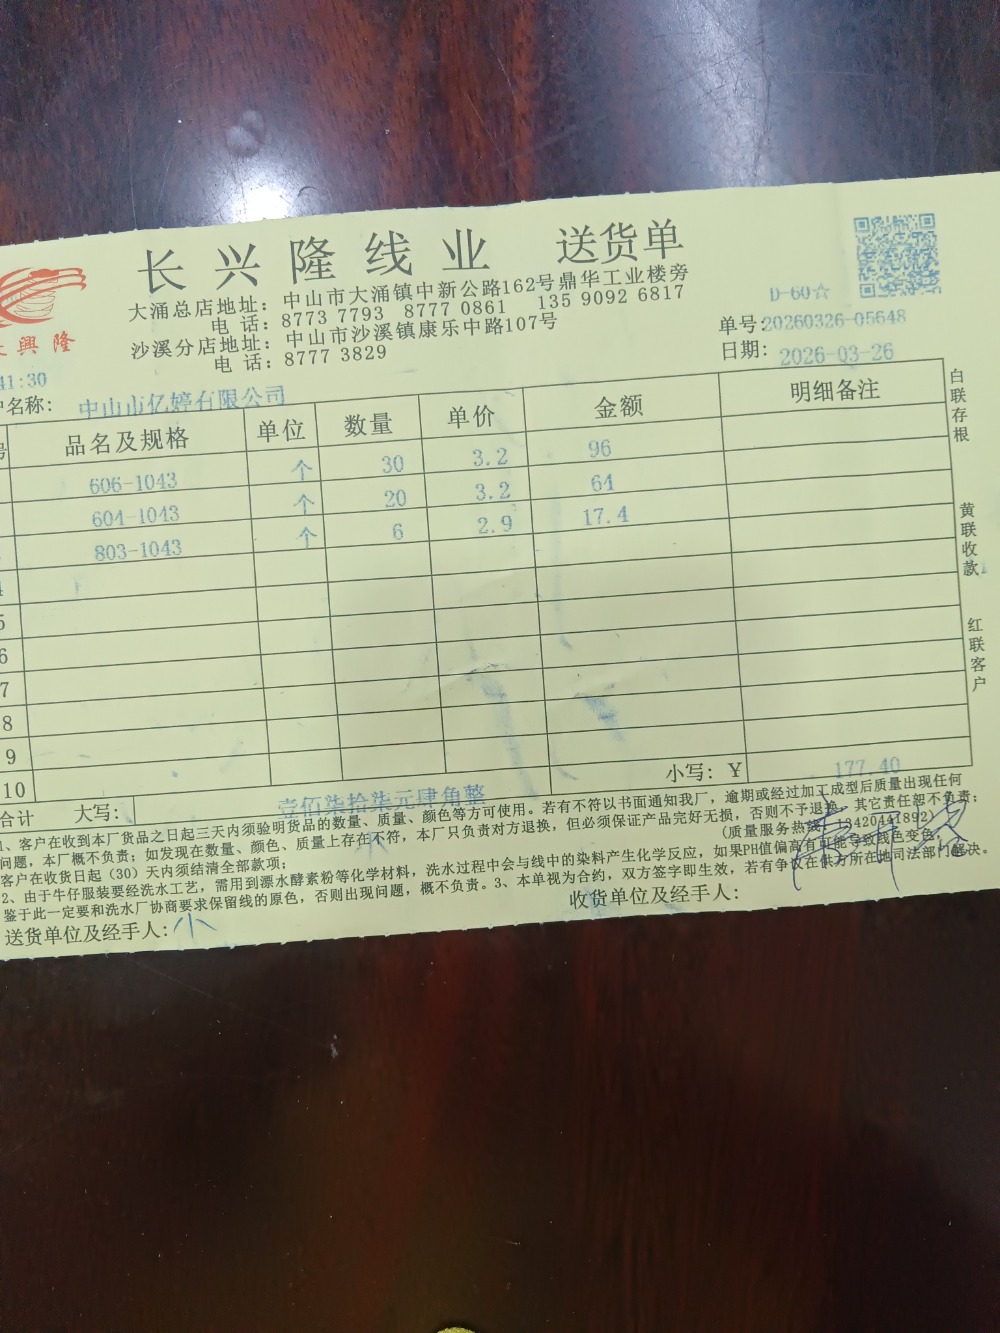 长兴隆线业 送货单
大涌总店地址：中山市大涌镇中新公路162号鼎华工业楼旁
电 话：8773 7793 8777 0861 135 9092 6817
沙溪分店地址：中山市沙溪镇康乐中路107号
电 话：8777 3829
興隆
D-60☆
单号:20260326-05648
日期: 2026-03-26
41:30
户名称: 中山市亿婷有限公司
号 品名及规格 单位 数量 单价 金额 明细备注
606-1043 个 30 3.2 96
604-1043 个 20 3.2 64
803-1043 个 6 2.9 17.4
4
5
6
7
8
9
10
小写: ¥ 177.40
合计 大写: 壹佰柒拾柒元肆角整
1、客户在收到本厂货品之日起三天内须验明货品的数量、质量、颜色等方可使用。若有不符以书面通知我厂，逾期或经过加工成型后质量出现任何
问题，本厂概不负责；如发现在数量、颜色、质量上存在不符，本厂只负责对方退换，但必须保证产品完好无损，否则不予退换，其它责任恕不负责；
客户在收货日起（30）天内须结清全部款项； (质量服务热线: 18420441892)
2、由于牛仔服装要经洗水工艺，需用到漂水酵素粉等化学材料，洗水过程中会与线中的染料产生化学反应，如果PH值偏高有可能导致线色变色，
鉴于此一定要和洗水厂协商要求保留线的原色，否则出现问题，概不负责。3、本单视为合约，双方签字即生效，若有争议在供方所在地司法部门解决。
送货单位及经手人: 小 收货单位及经手人:
白联存根
黄联收款
红联客户